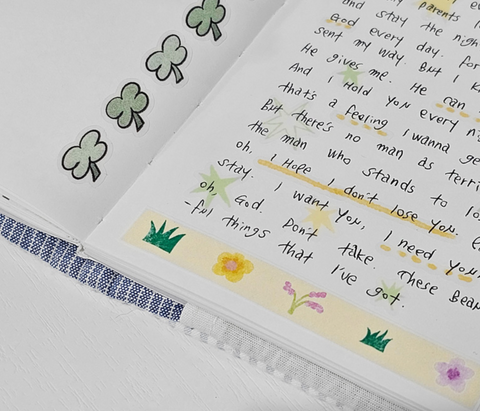 my parents
and stay the nigh
God every day. for
sent my way. But I k
He gives me. He can
And I Hold You every ni
that's a feeling I wanna ge
But there's no man as terri
the man who stands to lo
oh, I Hope I don't lose you.
stay. I want You, I need You
oh, God. Don't take. These Beau
-ful things that I've got.